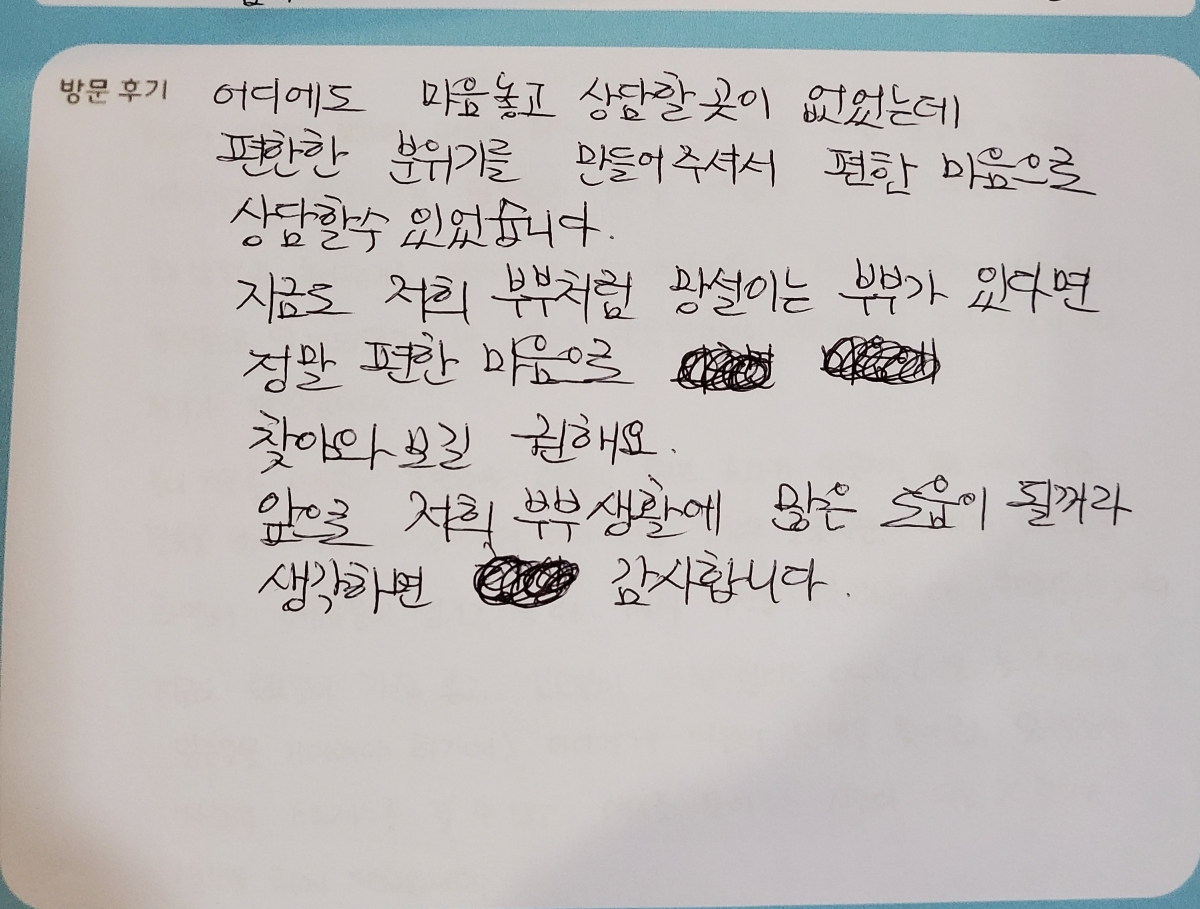 방문 후기 어디에도 마음놓고 상담할 곳이 없었는데
편한한 분위기를 만들어주셔서 편한 마음으로
상담할수 있었습니다.
지금도 저희 부부처럼 망설이는 부부가 있다면
정말 편한 마음으로
찾아와 보길 권해요.
앞으로 저희 부부생활에 많은 도움이 될꺼라
생각하면 감사합니다.